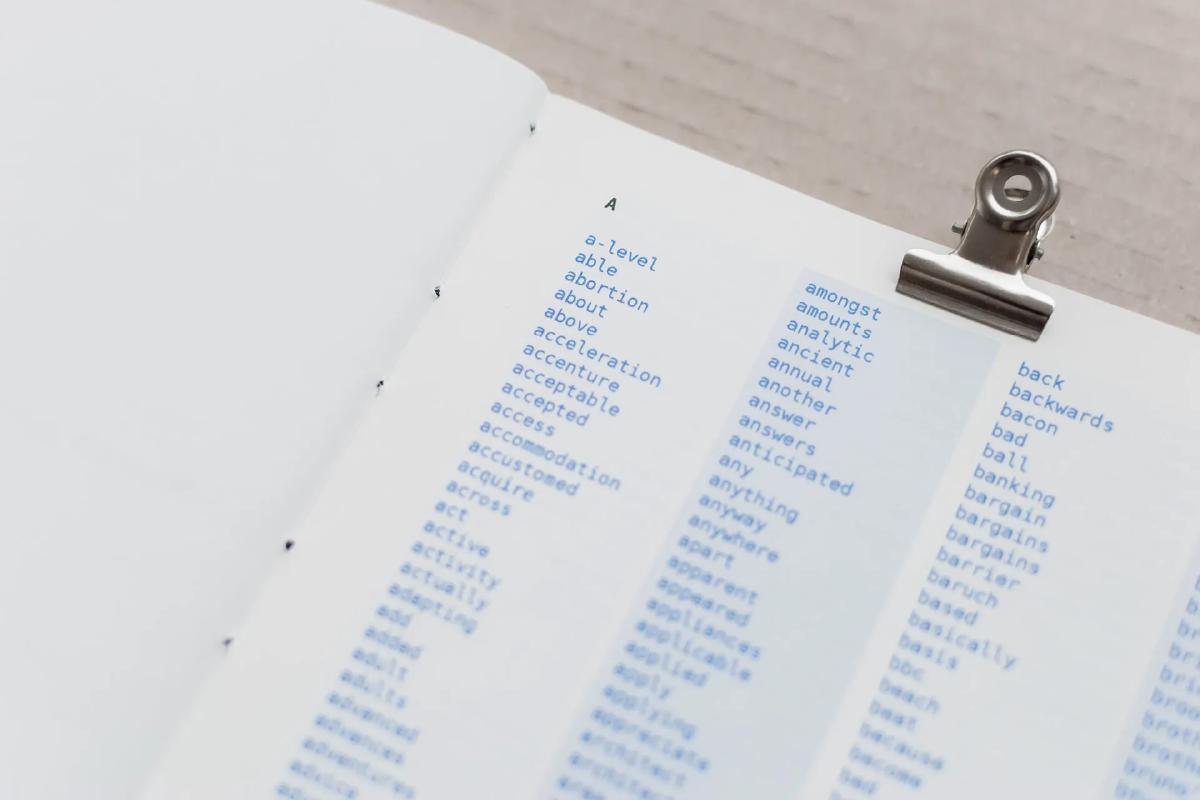 A
a-level
able
abortion
about
above
acceleration
accenture
acceptable
accepted
access
accommodation
accustomed
acquire
across
act
active
activity
actually
adapting
add
added
adult
adults
advanced
advances
adventures
advice
amongst
amounts
analytic
ancient
annual
another
answer
answers
anticipated
any
anything
anyway
anywhere
apart
apparent
appeared
appliances
applicable
applied
apply
applying
appreciate
architect
back
backwards
bacon
bad
ball
banking
bargain
bargains
bargains
barrier
baruch
based
basically
basis
bbc
beach
beat
because
become
bed
bruno